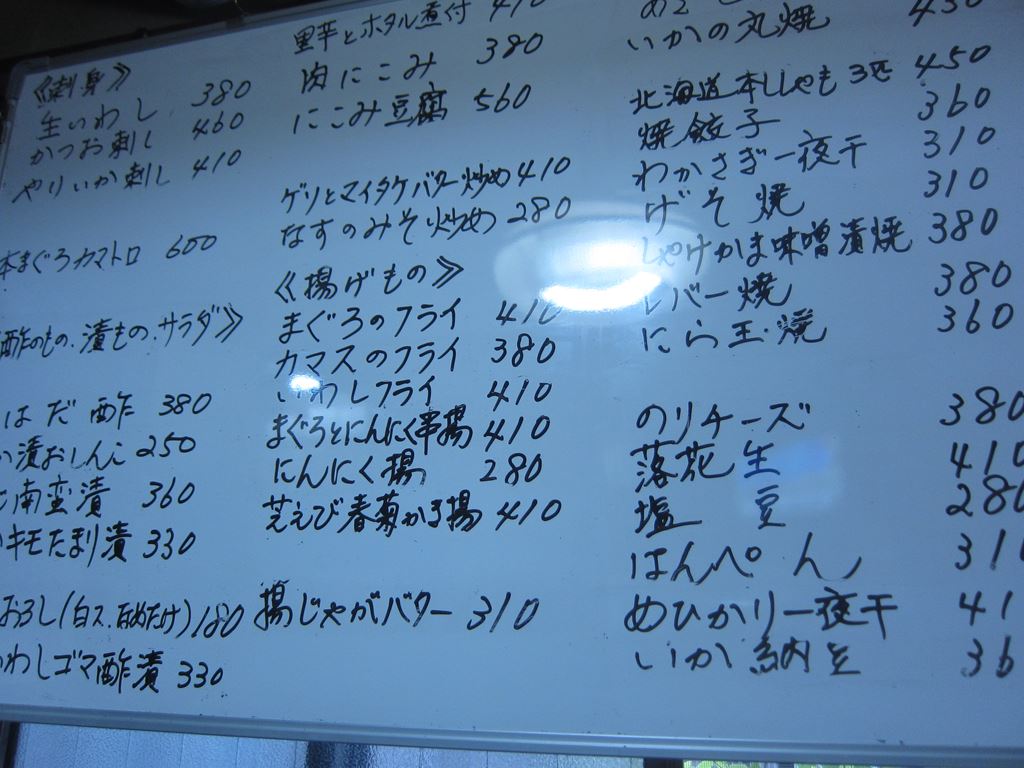 《刺身》
生いわし 380
かつお刺し 460
やりいか刺し 410
本まぐろカマトロ 600
酢のもの.漬もの.サラダ》
はだ酢 380
漬おしんこ 250
南蛮漬 360
キモたまり漬 330
おろし(白ス.なめたけ)180
わしゴマ酢漬 330
里芋とホタル煮付 410
肉にこみ 380
にこみ豆腐 560
ゲソとマイタケバター炒め 410
なすのみそ炒め 280
《揚げもの》
まぐろのフライ 410
カマスのフライ 380
いわしフライ 410
まぐろとにんにく串揚 410
にんにく揚 280
芝えび春菊かき揚 410
揚じゃがバター 310
いかの丸焼 430
北海道本ししゃも3匹 450
焼餃子 360
わかさぎ一夜干 310
げそ焼 310
しゃけかま味噌漬焼 380
レバー焼 380
にら玉焼 360
のりチーズ 380
落花生 410
塩豆 280
はんぺん 31
めひかり一夜干 41
いか納豆 36